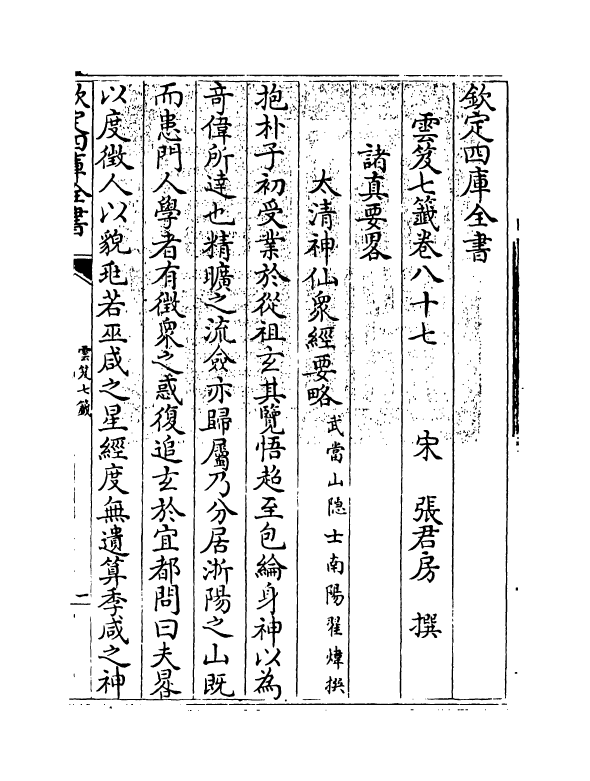 欽定四庫全書
雲笈七籤卷八十七
宋 張君房 撰
諸真要畧
太清神仙衆經要略武當山隠士南陽翟煒撰
抱朴子初受業於從祖玄其覽悟超至包綸身神以為
竒偉所達也精曠之流僉亦歸屬乃分居浙陽之山既
而患門人學者有徵衆之惑復追玄於宜都問曰夫晷
以度徴人以貌玭若巫咸之星經度無遺算季咸之神
欽定四庫全書
雲笈七籤
二